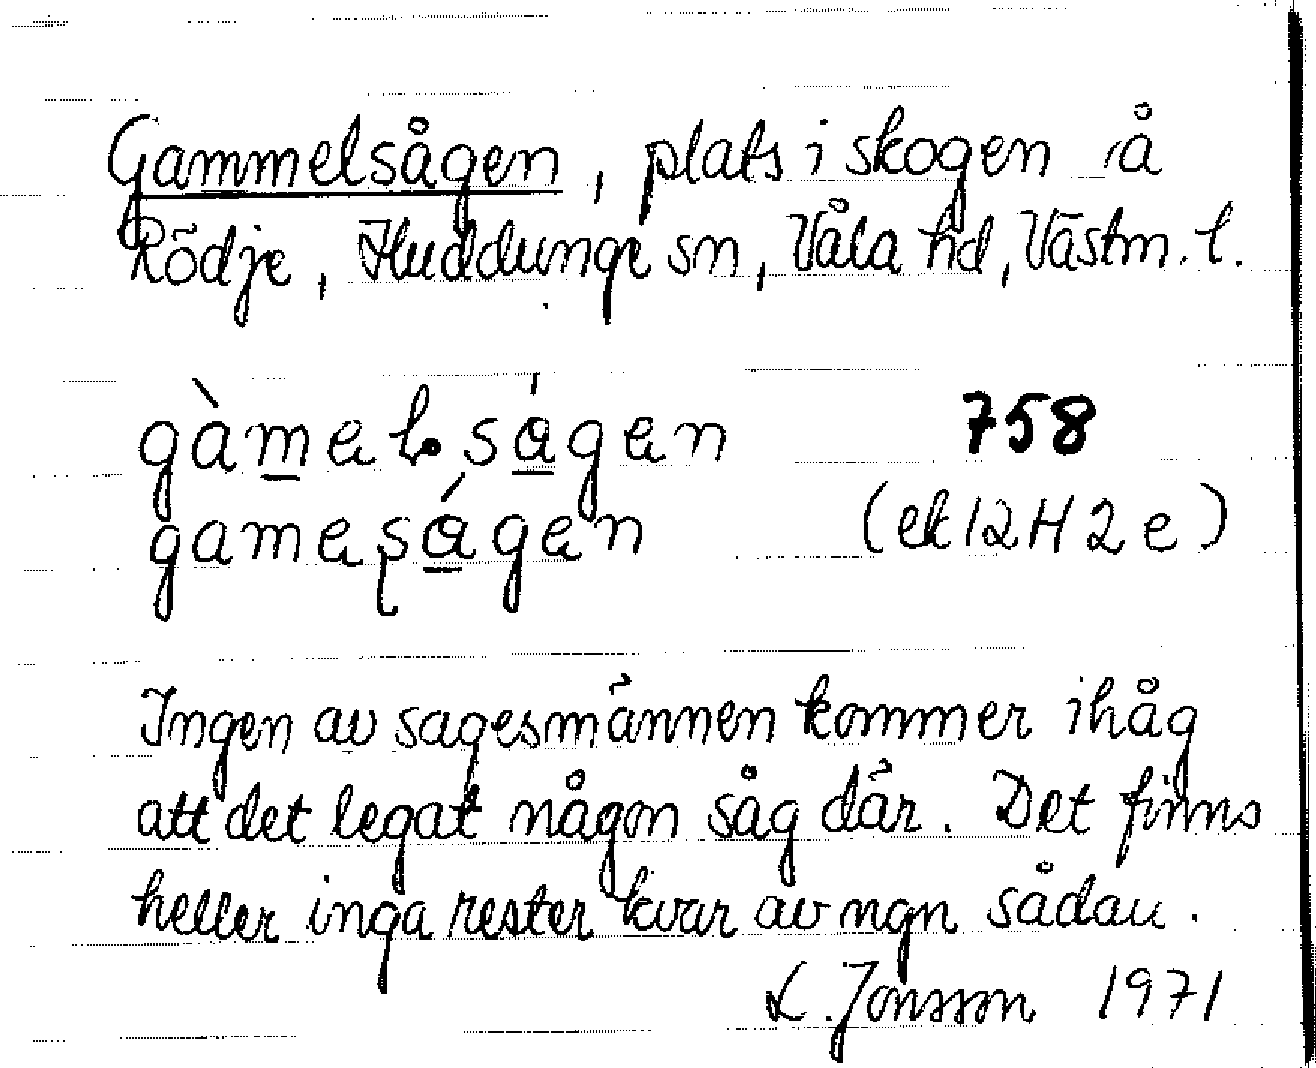 Gammelsågen, plats i skogen å
Rödje, Huddunge sn, Våla hd, Västm. l.
gàmelságen
758
gameságen
(ek 12H2e)
Ingen av sagesmännen kommer ihåg
att det legat någon såg där. Det finns
heller inga rester kvar av ngn sådan.
L. Jonsson 1971